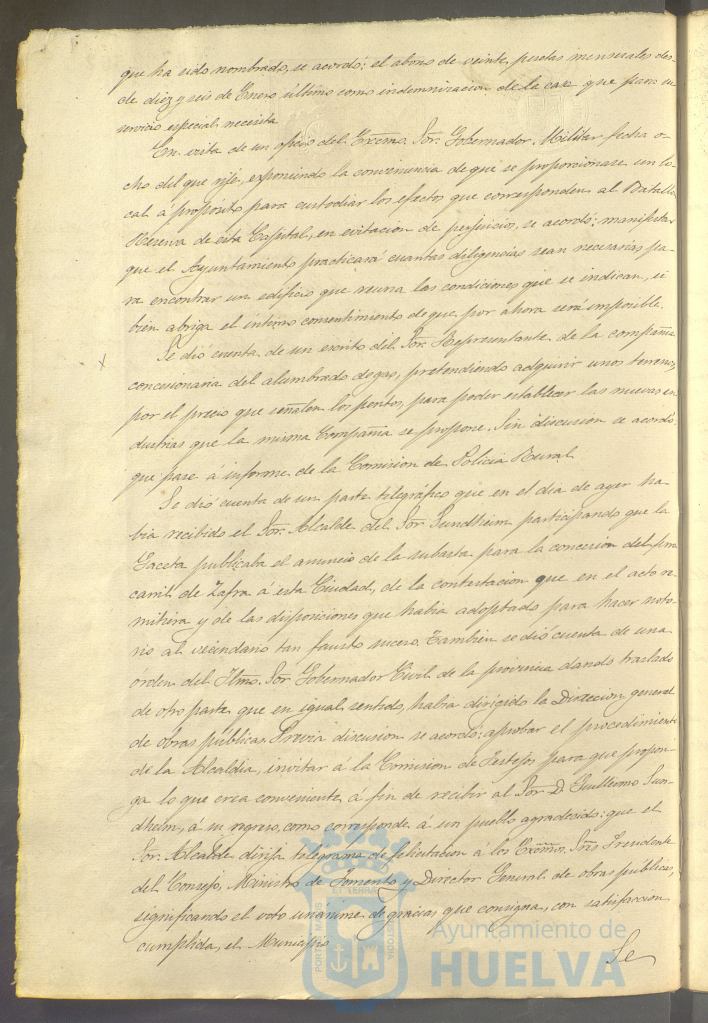 que ha sido nombrado, se acordó: el abono de veinte pesetas mensuales des-
de diez y seis de Enero último como indemnizacion de la casa que para su
servicio especial necesita
En vista de un oficio del Excmo. Sor. Gobernador Militar, fecha o-
cho del que rije, exponiendo la conveniencia de que se proporcionase un lo-
cal á propósito para custodiar los efectos que corresponden al Batallon
Reserva de esta Capital, en evitacion de perjuicios, se acordó: manifestar
que el Ayuntamiento practicará cuantas diligencias sean necesarias pa-
ra encontrar un edificio que reuna las condiciones que se indican, si
bien abriga el íntimo convencimiento de que, por ahora será imposible.
Se dió cuenta de un escrito del Sor. Representante de la compañia
concesionaria del alumbrado de gas, pretendiendo adquirir unos terrenos,
por el precio que señalen los peritos, para poder establecer las nuevas in-
dustrias que la misma Compañia se propone. Sin discusion se acordó
que pase á informe de la Comision de Policia Rural
Se dió cuenta de un parte telegráfico que en el dia de ayer ha-
bia recibido el Sor. Alcalde del Sor. Sundheim participando que la
Gaceta publicaba el anuncio de la subasta para la concesion del ferro
carril de Zafra á esta Ciudad, de la contestacion que en el acto re-
mitiera y de las disposiciones que habia adoptado para hacer noto-
rio al vecindario tan fausto suceso. Tambien se dió cuenta de una
órden del Iltmo. Sor. Gobernador Civil de la provincia dando traslado
de otro parte que en igual sentido, habia dirigido la Direccion general
de obras públicas. Previa discusion se acordó: aprobar el procedimiento
de la Alcaldia, invitar á la Comision de Festejos para que propon-
ga lo que crea conveniente á fin de recibir al Sor. D. Guillermo Sun-
dheim, á su regreso, como corresponde á un pueblo agradecido: que el
Sor. Alcalde dirija telegrama de felicitacion á los Excmos. Sres. Presidente
del Consejo, Ministro de Fomento y Director General de obras públicas,
significando el voto unánime de gracias que consigna, con satisfaccion
cumplida, el Municipio
Se
Ayuntamiento de
HUELVA